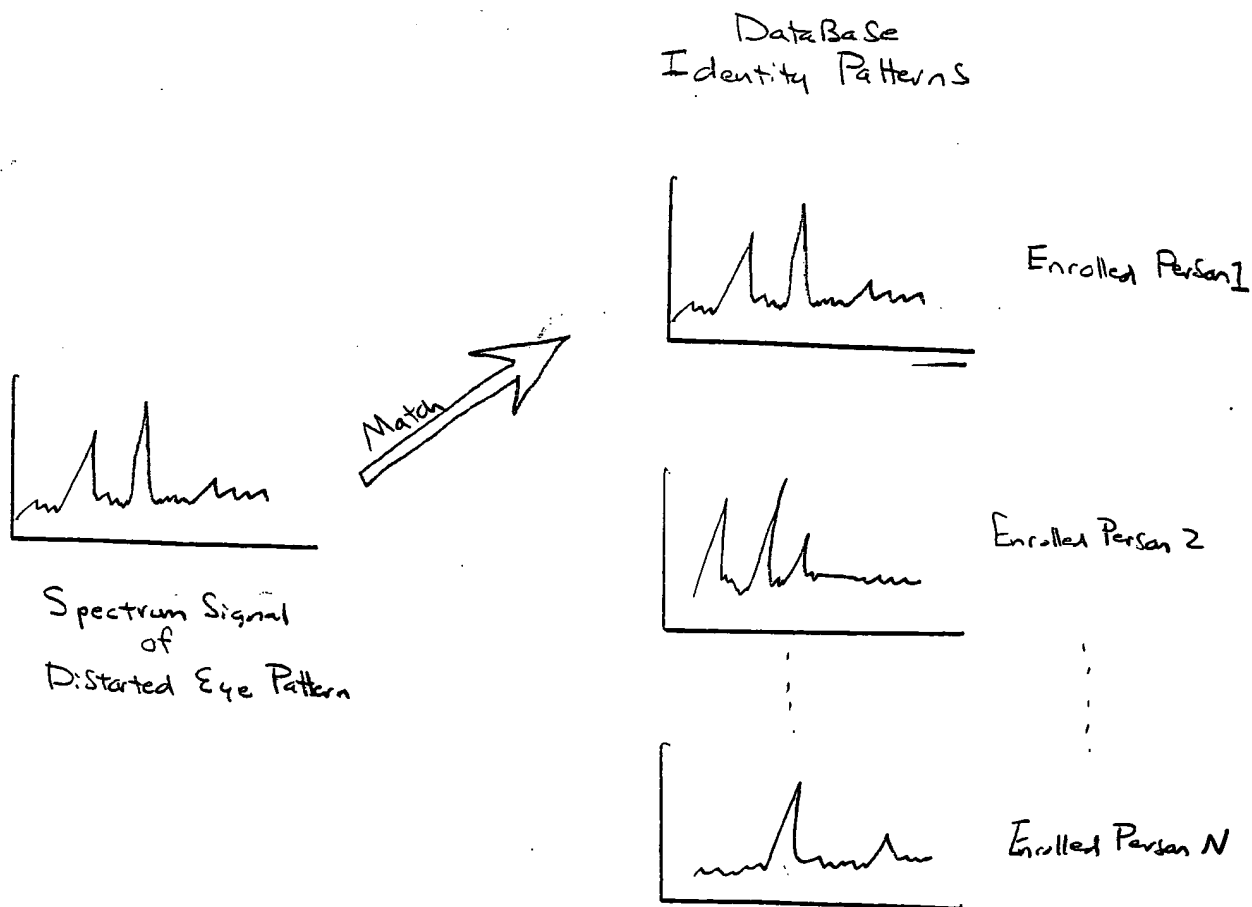 DataBaSe
Identity Patterns
Enrolled Person 1
Match
Enrolled Person 2
Spectrum Signal
of
Distorted Eye Pattern
Enrolled Person N